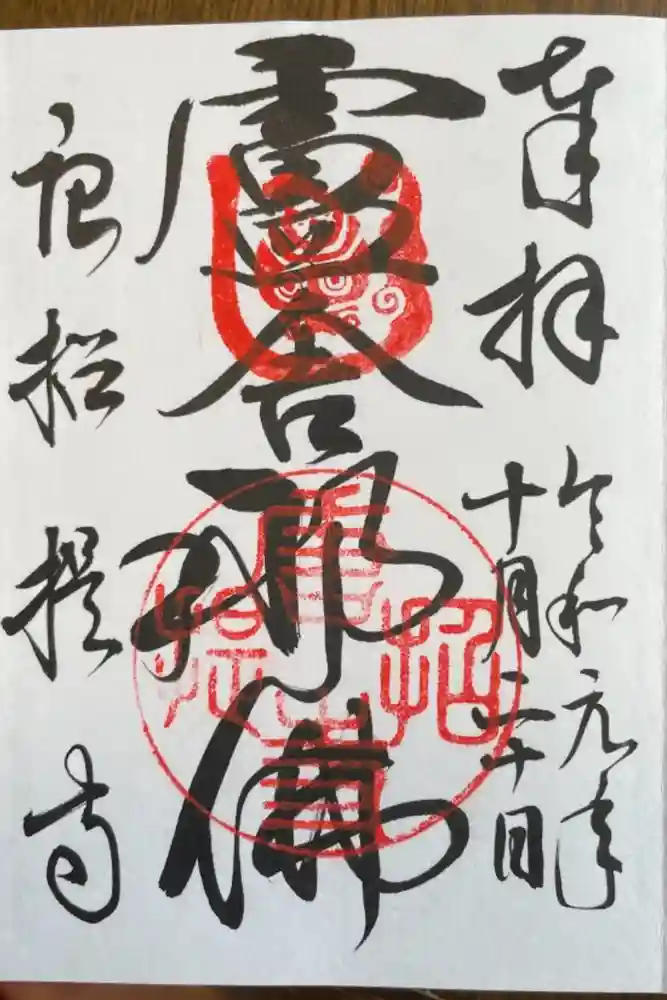 奉拝
令和元年
十月二十日
盧舎那佛
唐招提寺
唐招提寺